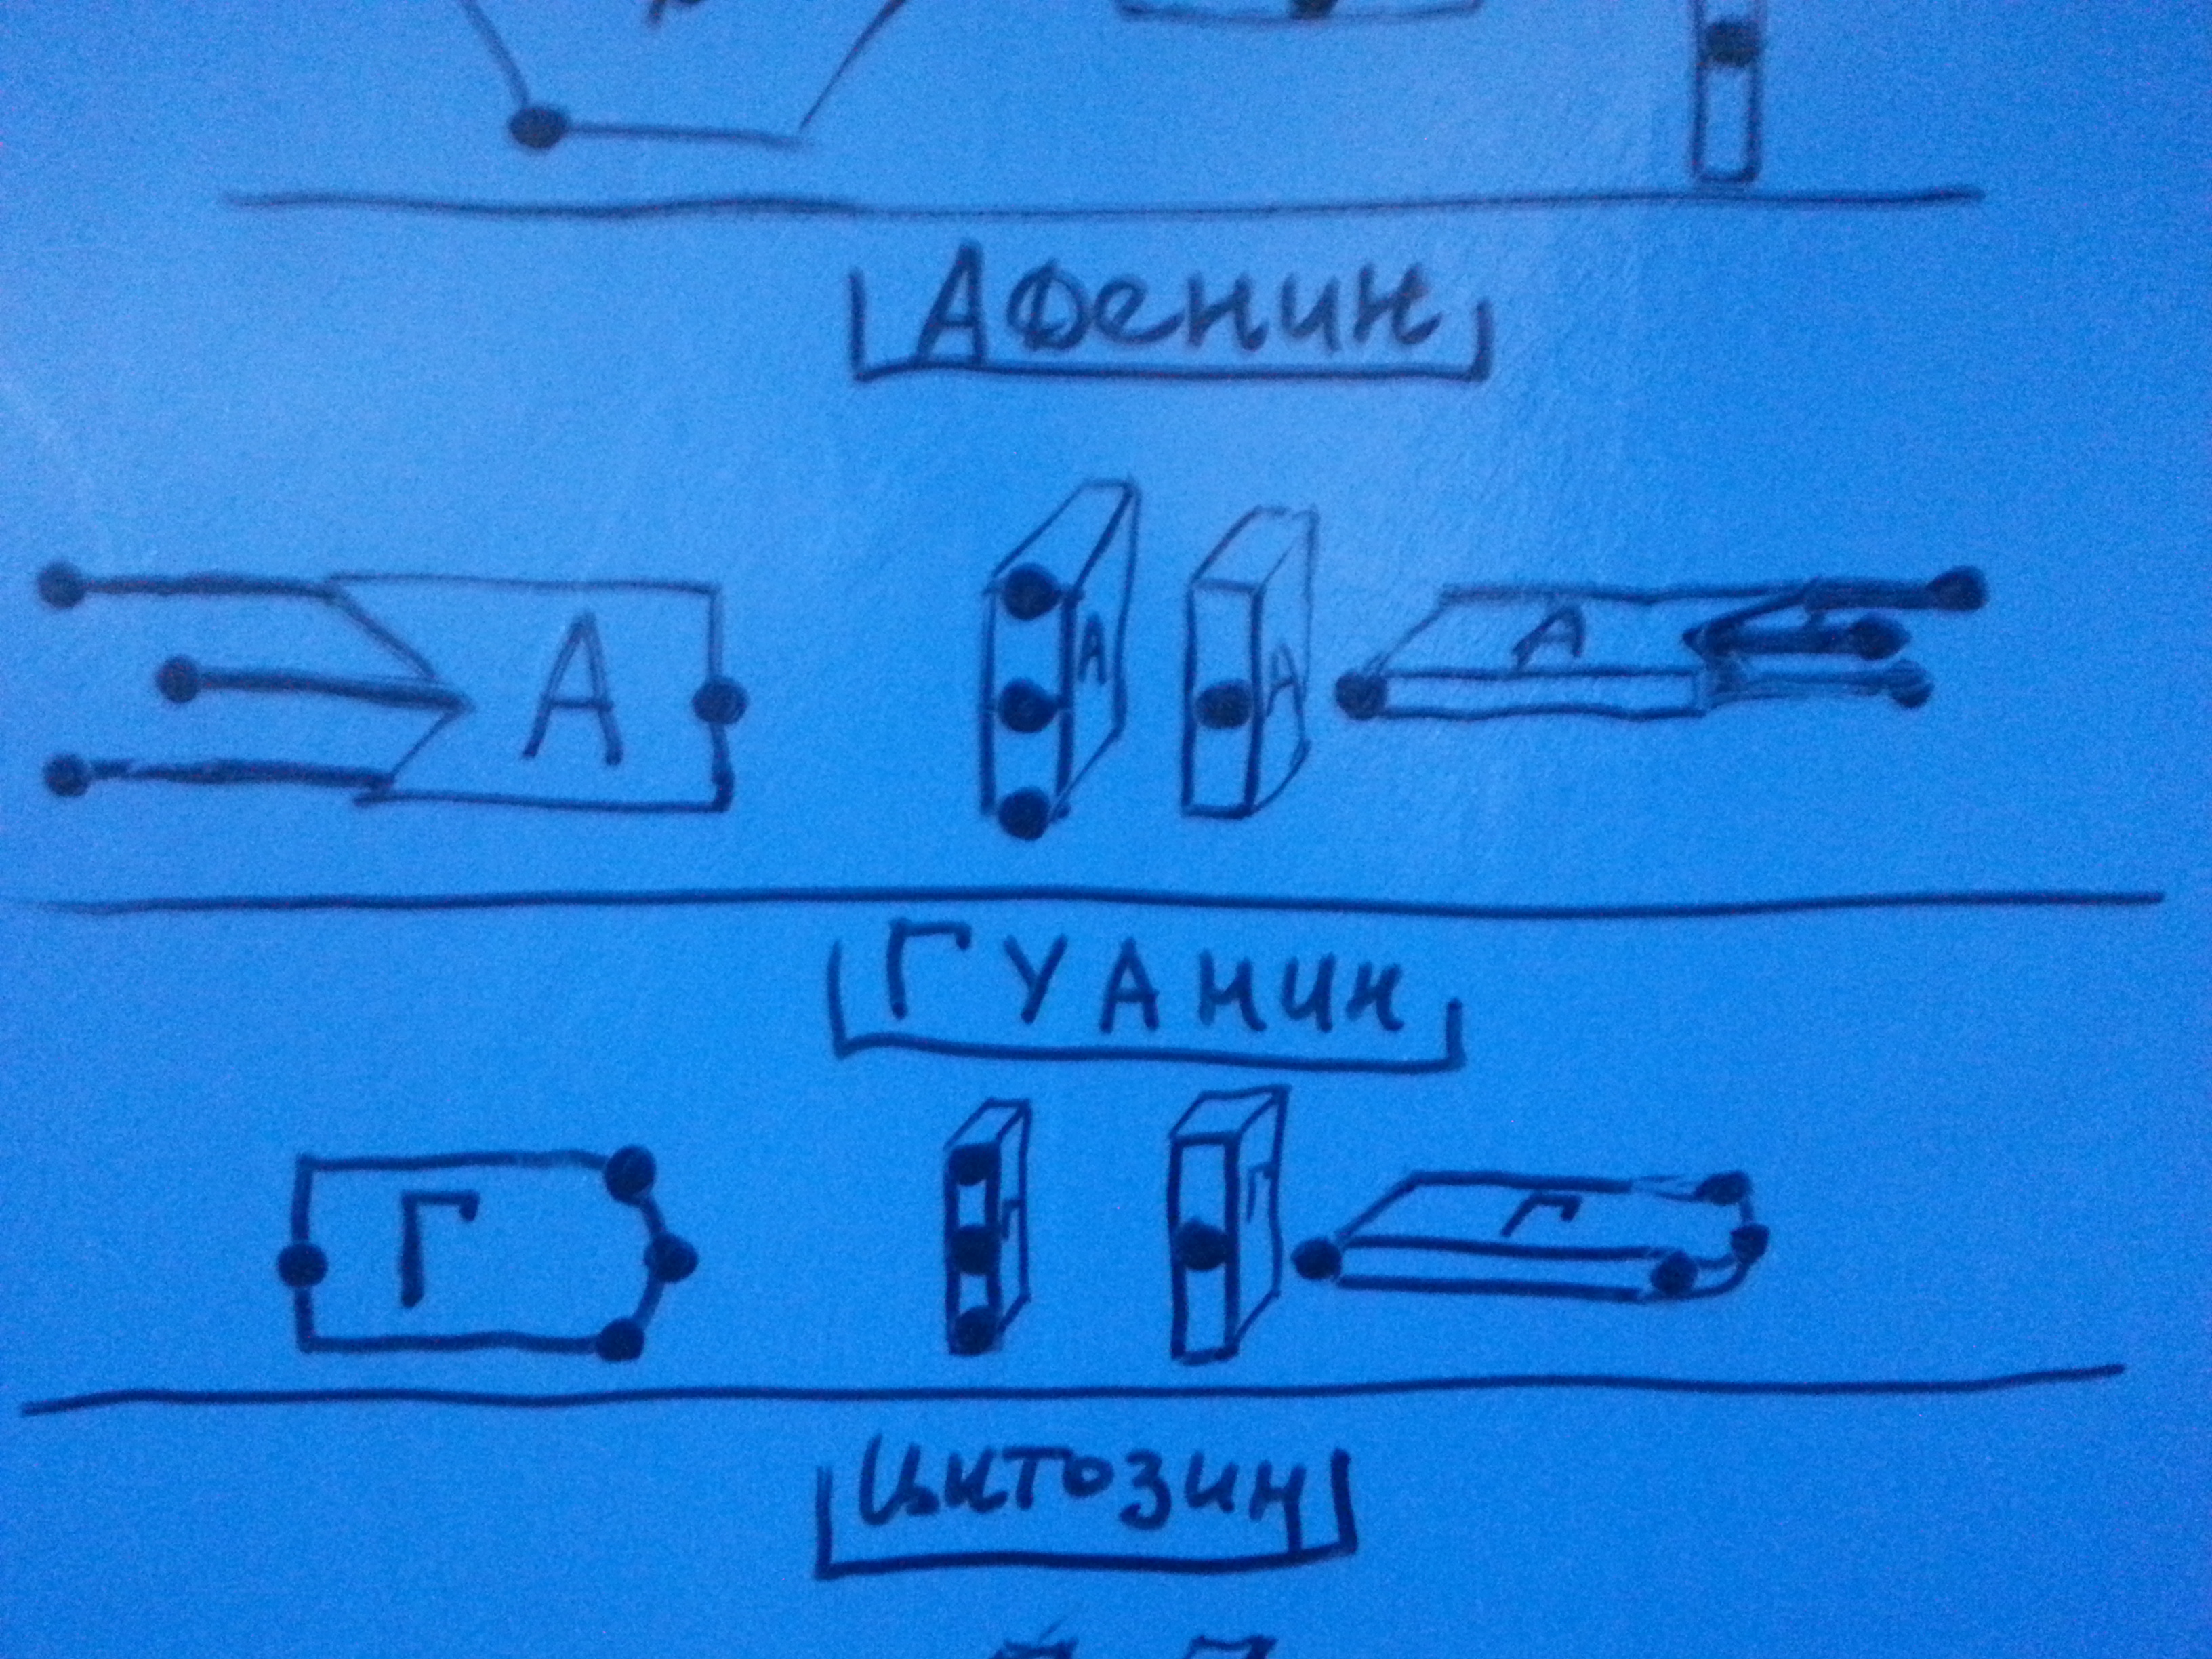 Аденин
А А А А
ГУАНИН
Г Г Г Г
цитозин